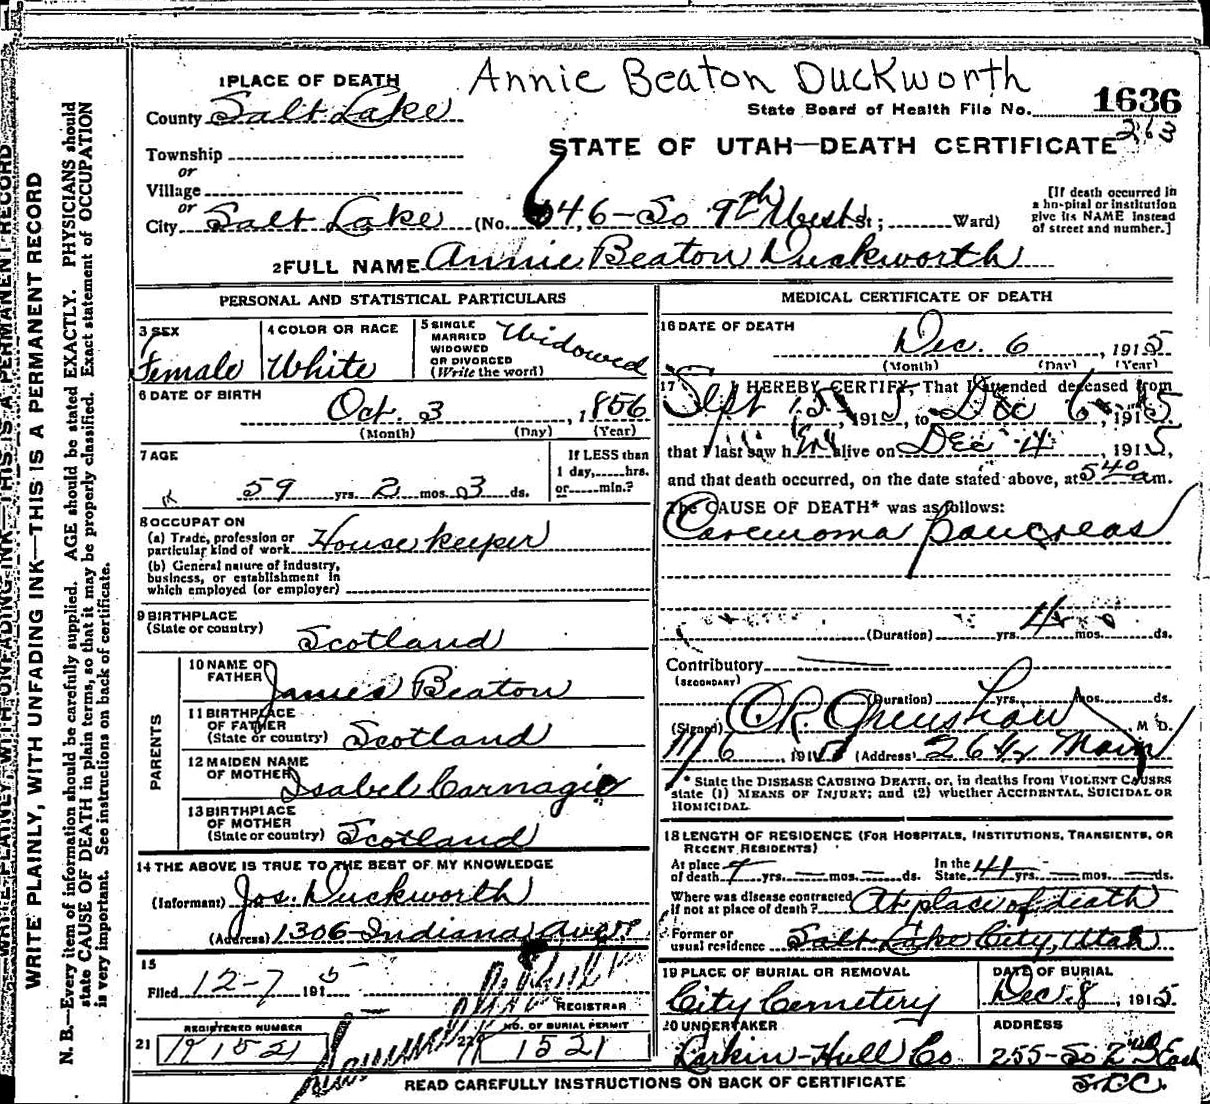 Annie Beaton Duckworth
1 PLACE OF DEATH
State Board of Health File No. 1636
County Salt Lake
263
STATE OF UTAH—DEATH CERTIFICATE
Township
or
Village
or
City Salt Lake (No. 646-So 9th West St; Ward)
[If death occurred in a hospital or institution give its NAME instead of street and number.]
2 FULL NAME Annie Beaton Duckworth
PERSONAL AND STATISTICAL PARTICULARS
3 SEX Female
4 COLOR OR RACE White
5 SINGLE MARRIED WIDOWED OR DIVORCED (Write the word) Widowed
6 DATE OF BIRTH
Oct. 3, 1856
(Month) (Day) (Year)
7 AGE
59 yrs. 2 mos. 3 ds.
If LESS than 1 day, hrs. or min.?
8 OCCUPATION
(a) Trade, profession or particular kind of work House keeper
(b) General nature of industry, business, or establishment in which employed (or employer)
9 BIRTHPLACE
(State or country) Scotland
PARENTS
10 NAME OF FATHER James Beaton
11 BIRTHPLACE OF FATHER (State or country) Scotland
12 MAIDEN NAME OF MOTHER Isabel Carnagie
13 BIRTHPLACE OF MOTHER (State or country) Scotland
14 THE ABOVE IS TRUE TO THE BEST OF MY KNOWLEDGE
(Informant) Jos. Duckworth
(Address) 1306 Indiana Ave
15
Filed 12-7 1915
REGISTRAR
REGISTERED NUMBER
21 1521
NO. OF BURIAL PERMIT
22 1521
MEDICAL CERTIFICATE OF DEATH
16 DATE OF DEATH
Dec. 6, 1915
(Month) (Day) (Year)
17 I HEREBY CERTIFY, That I attended deceased from
Sept 15, 1915, to Dec 6, 1915
that I last saw her alive on Dec 4, 1915,
and that death occurred, on the date stated above, at 5 40 a m.
The CAUSE OF DEATH* was as follows:
Carcinoma pancreas
(Duration) yrs. 4 mos. ds.
Contributory
(SECONDARY)
(Duration) yrs. mos. ds.
(Signed) M D.
191 (Address) Main
* State the DISEASE CAUSING DEATH, or, in deaths from VIOLENT CAUSES
state (1) MEANS OF INJURY; and (2) whether ACCIDENTAL, SUICIDAL OR
HOMICIDAL.
18 LENGTH OF RESIDENCE (FOR HOSPITALS, INSTITUTIONS, TRANSIENTS, OR
RECENT RESIDENTS)
At place of death 9 yrs. — mos. — ds. In the State 41 yrs. — mos. — ds.
Where was disease contracted if not at place of death? At place of death
Former or usual residence Salt Lake City, Utah
19 PLACE OF BURIAL OR REMOVAL
City Cemetery
DATE OF BURIAL
Dec. 8, 1915
20 UNDERTAKER
Larkin-Hull Co
ADDRESS
255-So 2nd East
S.L.C.
READ CAREFULLY INSTRUCTIONS ON BACK OF CERTIFICATE
WRITE PLAINLY, WITH UNFADING INK—THIS IS A PERMANENT RECORD
N. B.—Every item of information should be carefully supplied. AGE should be stated EXACTLY. PHYSICIANS should
state CAUSE OF DEATH in plain terms, so that it may be properly classified. Exact statement of OCCUPATION
is very important. See instructions on back of certificate.